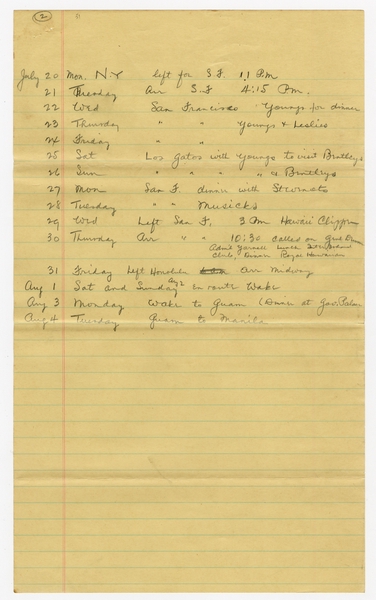 2
July 20 Mon. NY left for S.F. 11 PM
21 Tuesday Arr S.F 4:15 P.m.
22 Wed San Francisco Youngs for dinner
23 Thursday " " Youngs & Leslies
24 Friday " "
25 Sat Los Gatos with Youngs to visit Brattleys
26 Sun " " " " " Brattleys
27 Mon San F. dinner with Stewarts
28 Tuesday " " Musicks
29 Wed Left San F. 3 PM Hawaii Clipper
30 Thursday Arr " " 10:30 called on
Adml Yarnell lunch
Club, Dinner Royal Hawaiian
31 Friday Left Honolulu arr Midway
Aug 1 Sat and Sunday Aug 2 en route Wake
Aug 3 Monday Wake to Guam (Dinner at Gov. Palace
Aug 4 Tuesday Guam to Manila